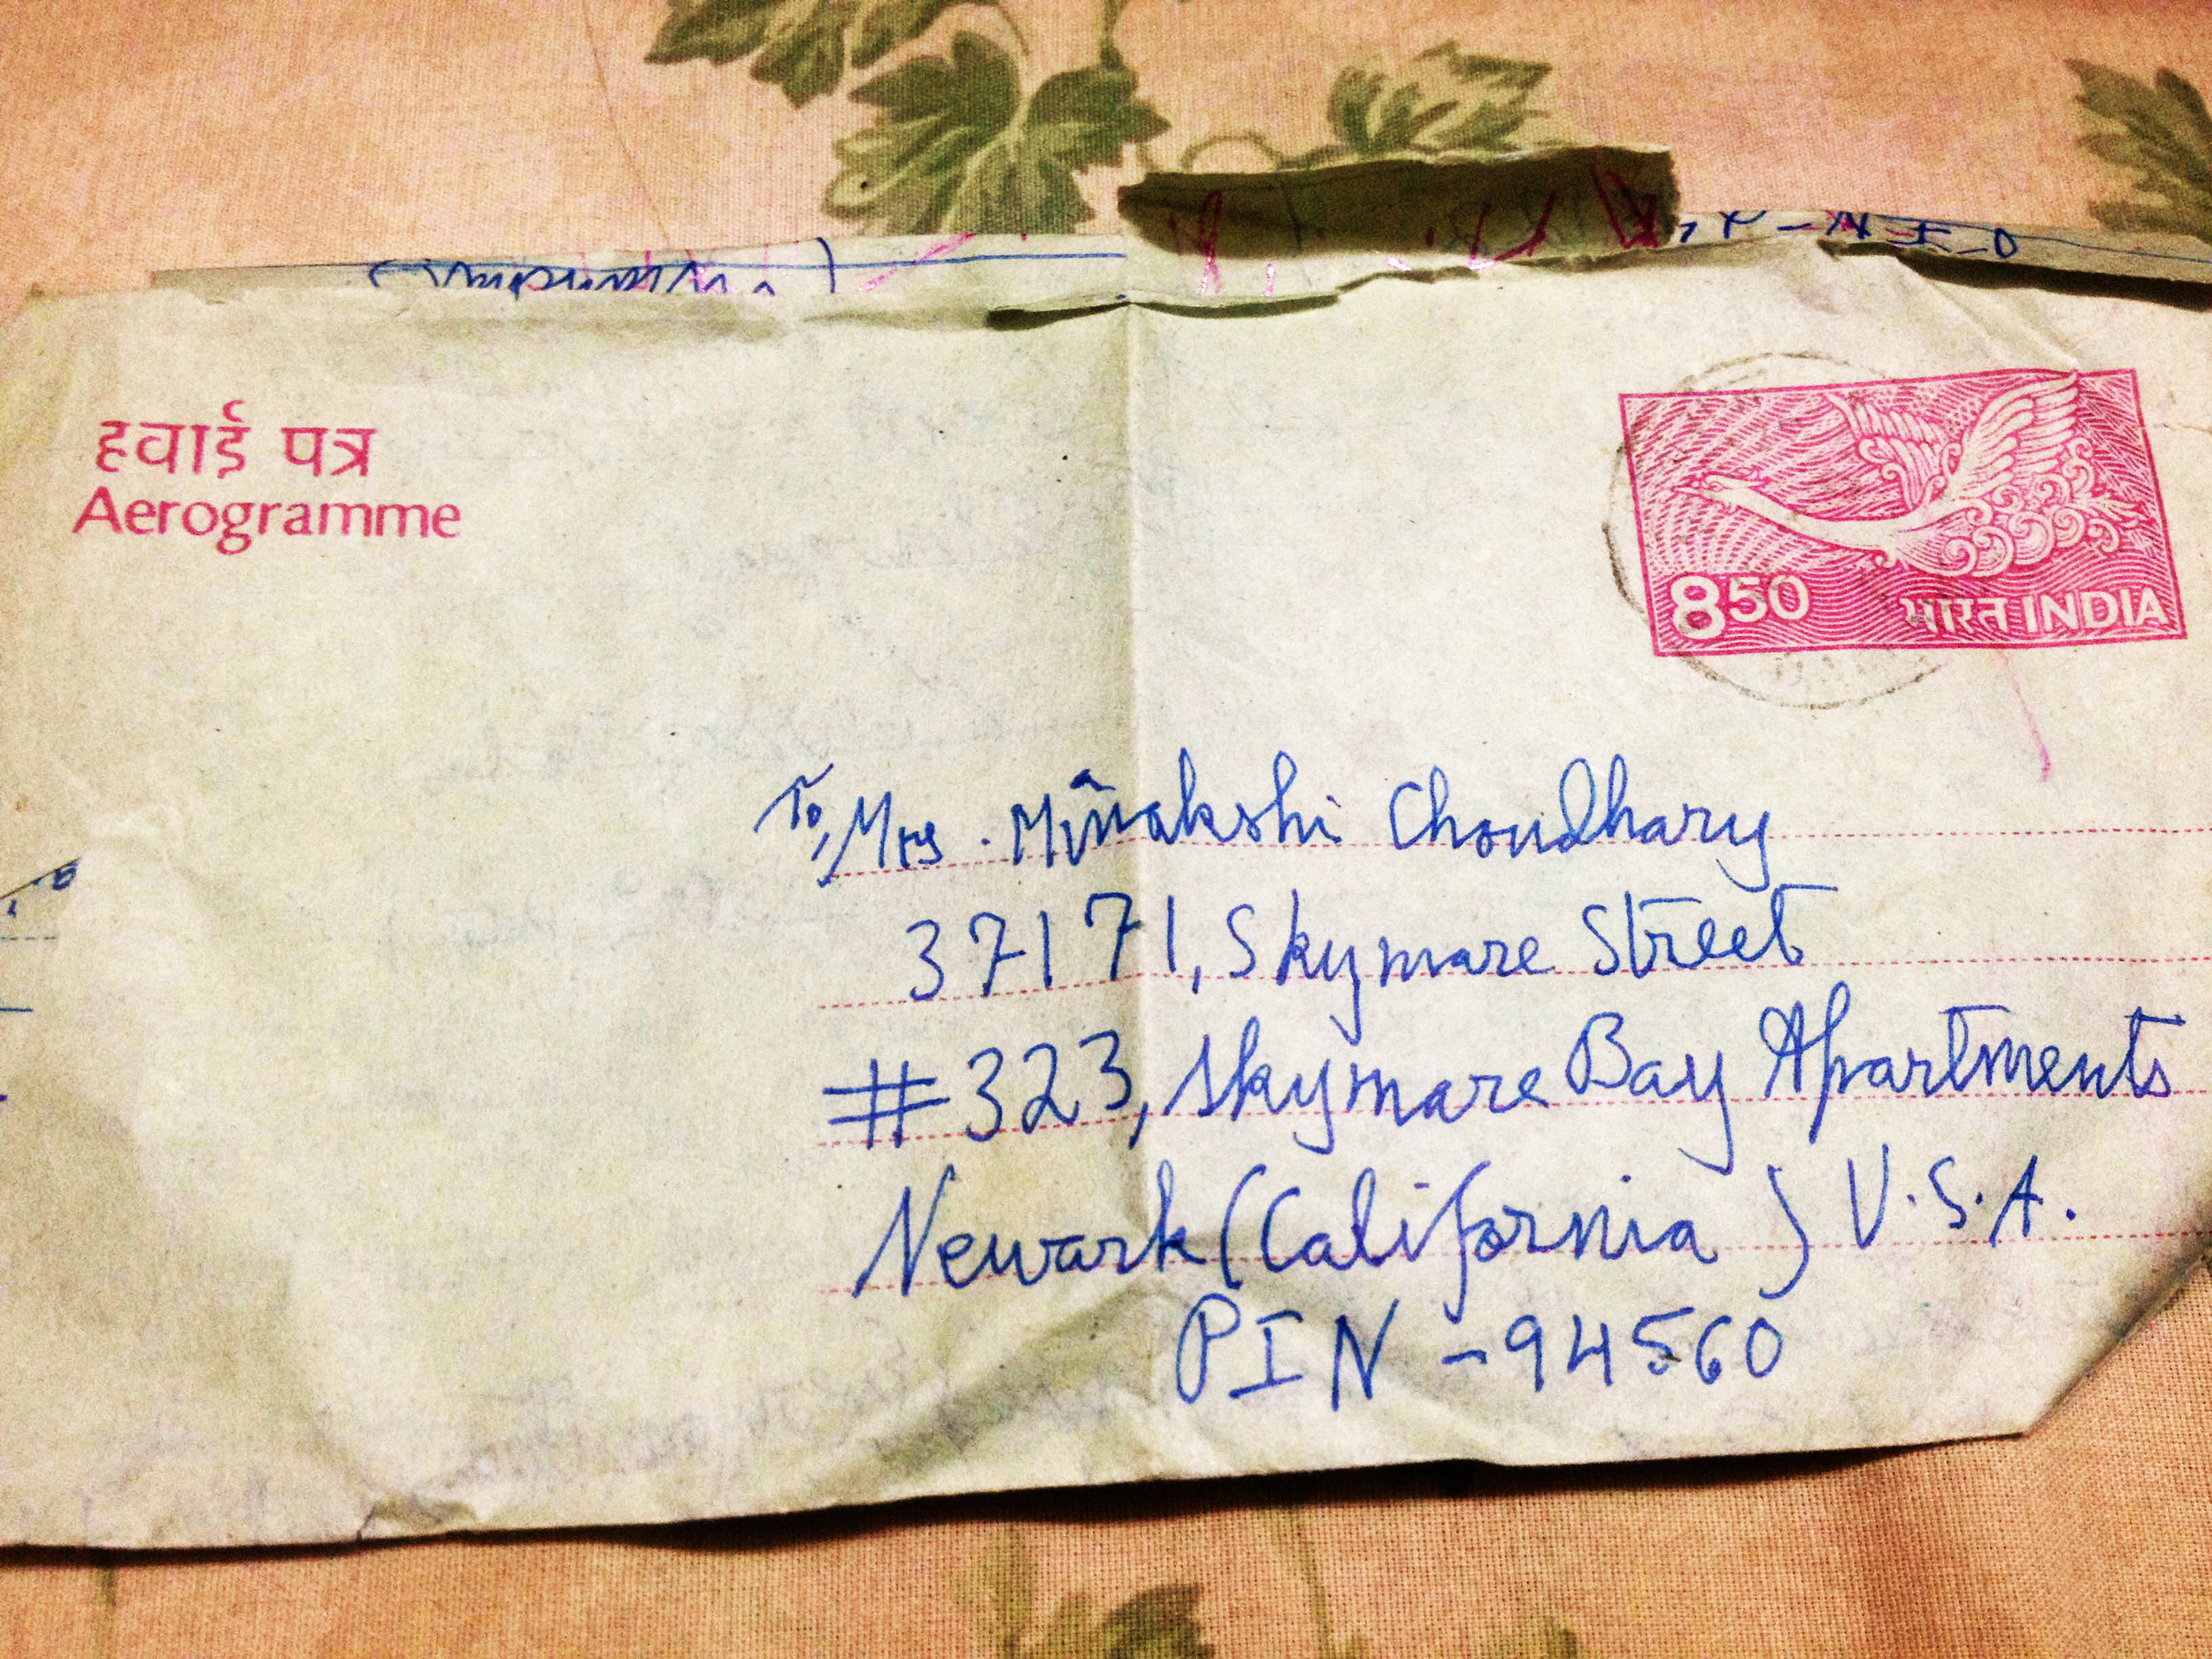 हवाई पत्र
Aerogramme
850 भारत INDIA
To, Mrs. Minakshi Choudhary
37171, Skymare Street
#323, Skymare Bay Apartments
Newark (California) U.S.A.
PIN - 94560